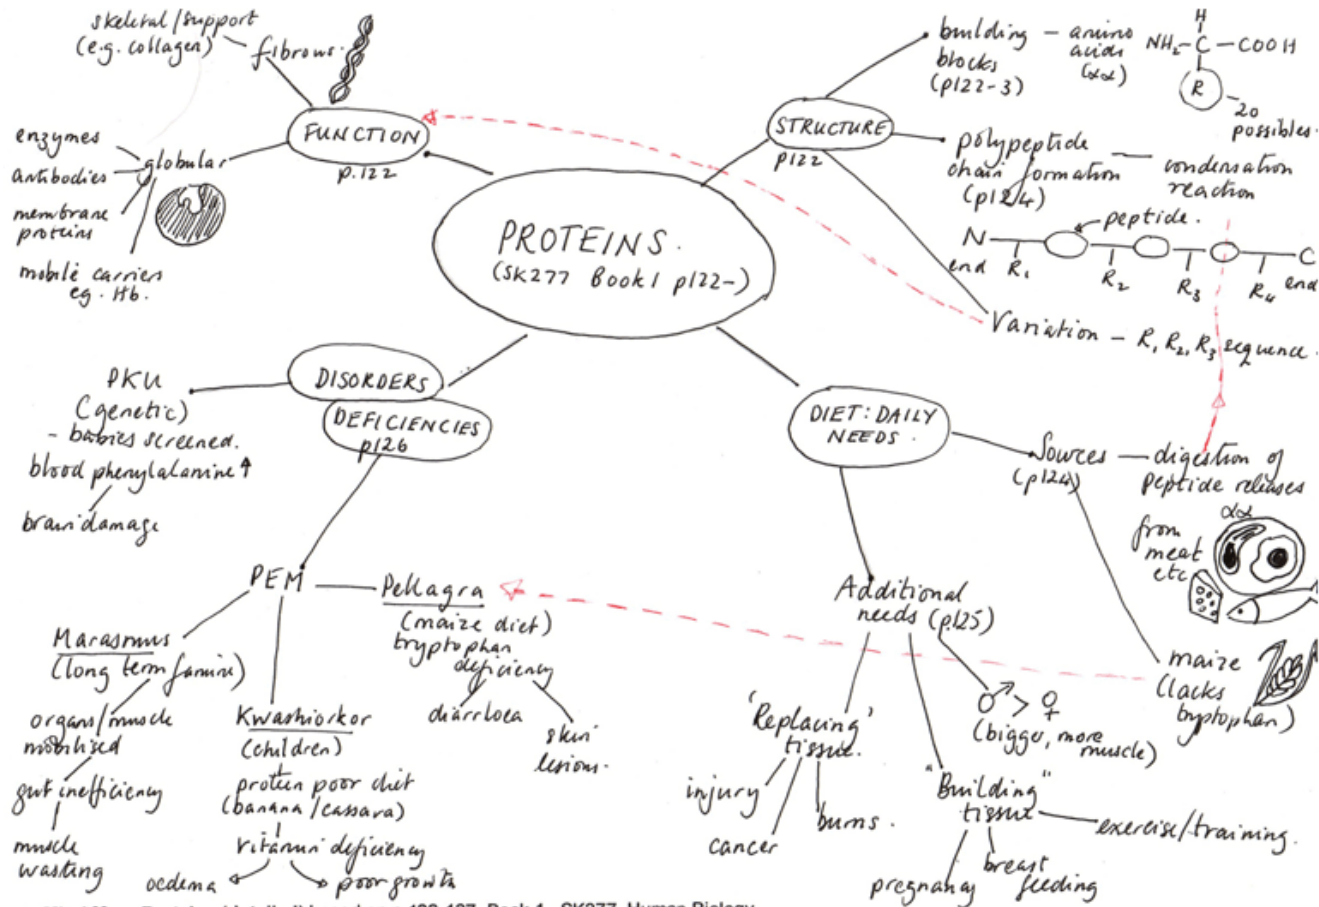 skeletal/support
(e.g. collagen)
fibrous.
FUNCTION
p.122
enzymes
antibodies
globular
membrane
proteins
mobile carriers
eg. Hb.
PROTEINS.
(SK277 Book 1 p122-)
STRUCTURE
p122
building
blocks
(p122-3)
amino
acids
(αα)
H
NH2-C-COOH
R
20
possibles.
polypeptide
chain formation
(p124)
condensation
reaction
peptide.
N
end
R1
R2
R3
R4
C
end
Variation - R1 R2, R3 sequence.
DISORDERS
DEFICIENCIES
p126
PKU
(genetic)
- babies screened.
blood phenylalanine ↑
brain damage
PEM
Marasmus
(long term famine)
organs/muscle
mobilised
gut inefficiency
muscle
wasting
Kwashiorkor
(children)
protein poor diet
(banana/cassara)
vitamin deficiency
oedema
poor growth
Pellagra
(maize diet)
tryptophan
deficiency
diarrhoea
skin
lesions.
DIET: DAILY
NEEDS.
Sources
(p124)
digestion of
peptide releases
αα
from
meat
etc
maize
(lacks
tryptophan)
Additional
needs (p.125)
♂ > ♀
(bigger, more
muscle)
'Replacing'
tissue.
injury
cancer
burns.
"Building"
tissue
exercise/training.
breast
feeding
pregnancy